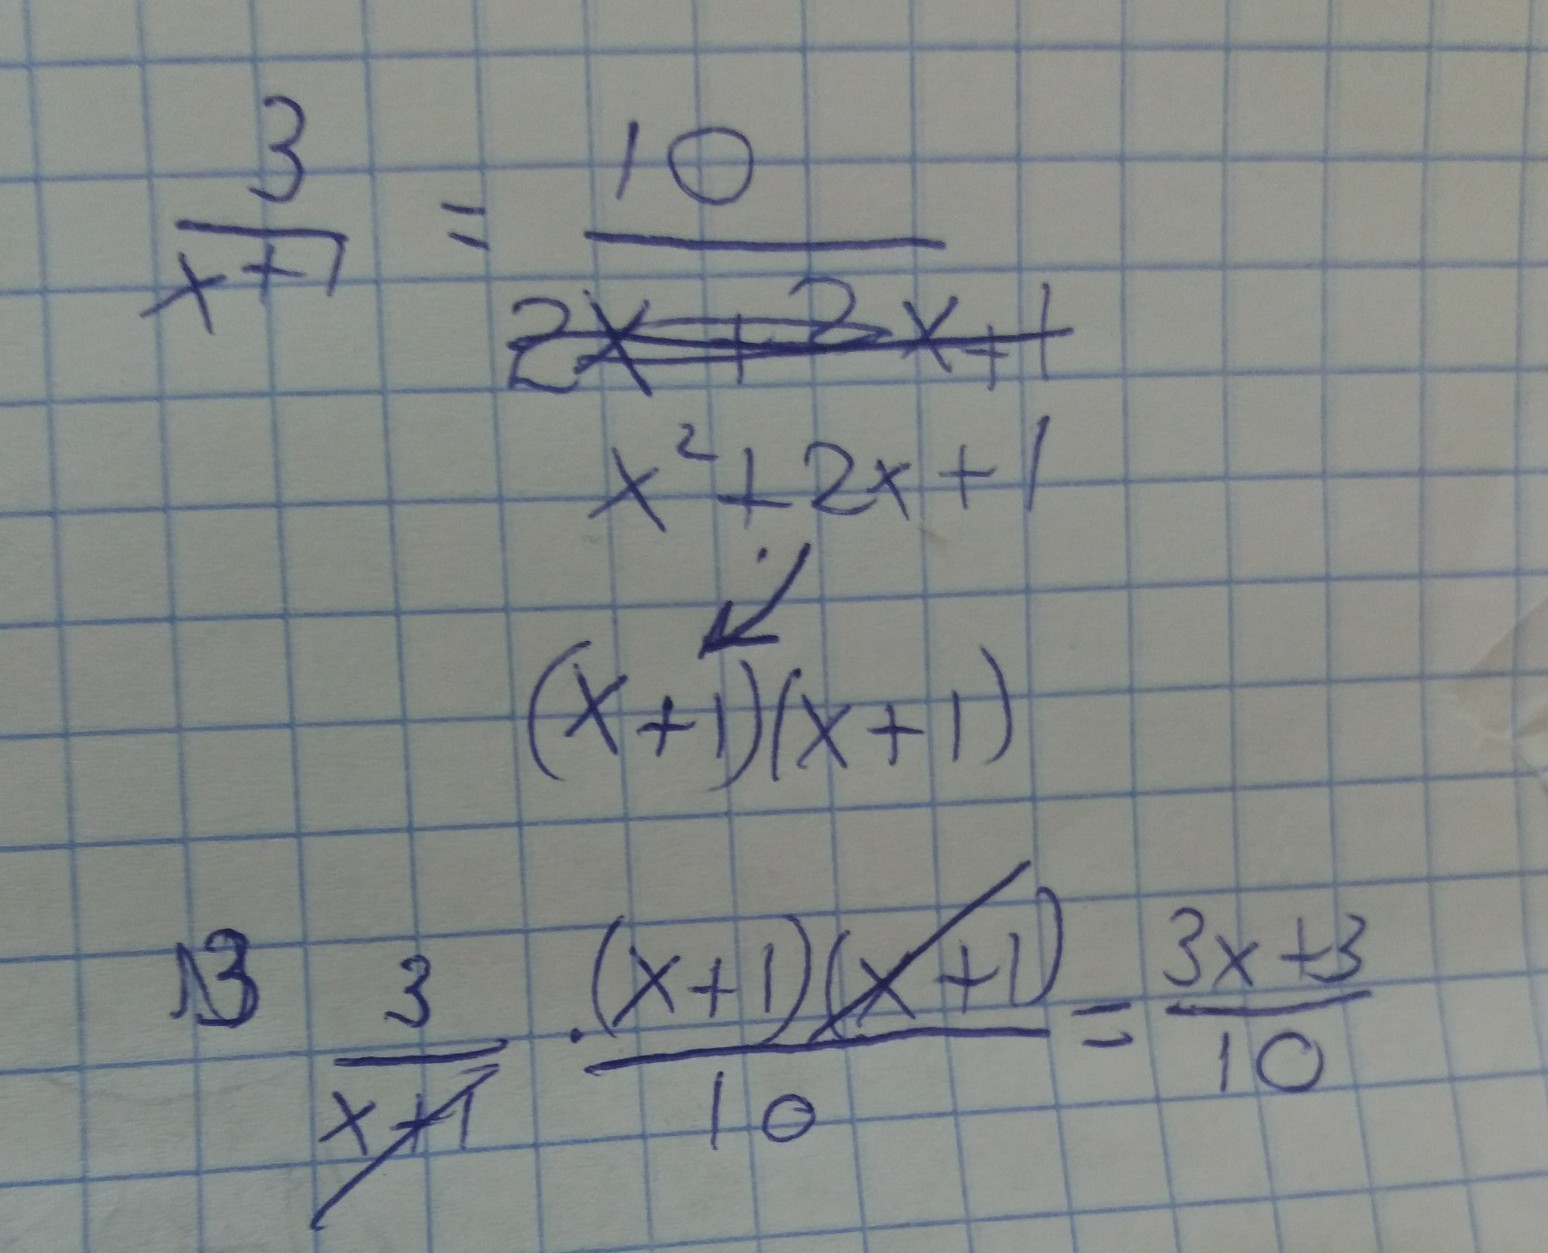 3/(x+1) = 10/
2x + 2x + 1
x² + 2x + 1
(x+1)(x+1)
3/(x+1) · (x+1)(x+1)/10 = (3x+3)/10